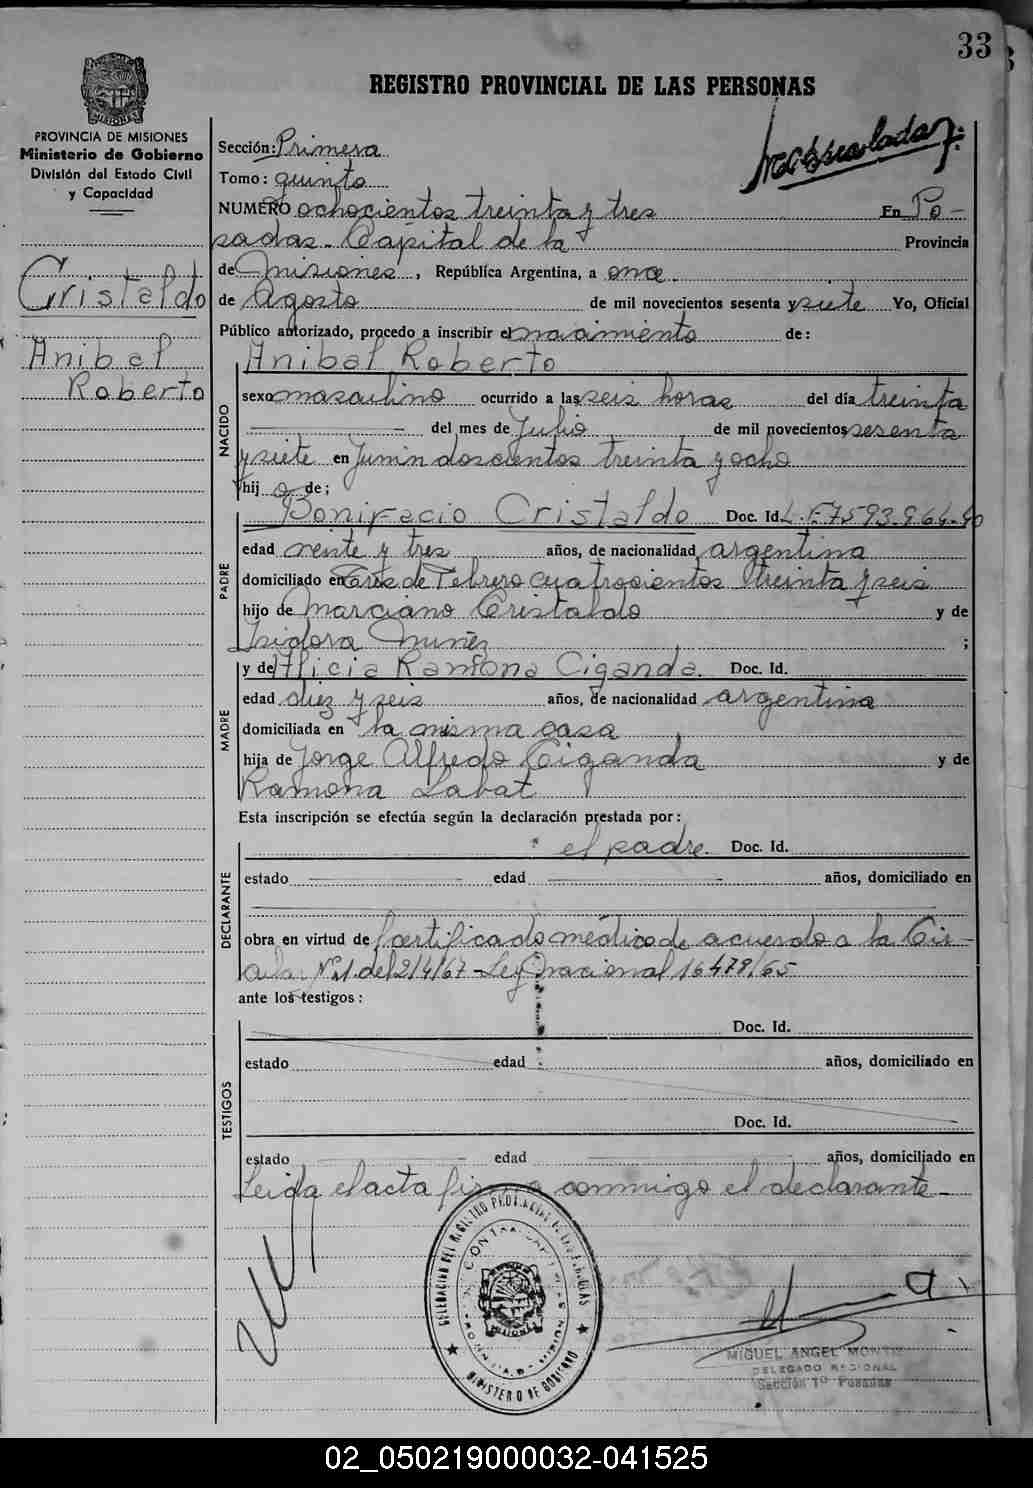 33
REGISTRO PROVINCIAL DE LAS PERSONAS
PROVINCIA DE MISIONES
Ministerio de Gobierno
División del Estado Civil
y Capacidad
Matriculado
Sección: Primera
Tomo: quinto
NUMERO ochocientos treinta y tres En Po-
sadas - Capital de la Provincia
de Misiones, República Argentina, a once
de Agosto de mil novecientos sesenta y siete Yo, Oficial
Público autorizado, procedo a inscribir el nacimiento de:
Cristaldo
Anibal
Roberto
NACIDO
Anibal Roberto
sexo masculino ocurrido a las seis horas del día treinta
del mes de Julio de mil novecientos sesenta
y siete en Junin doscientos treinta y ocho
hijo de;
PADRE
Bonifacio Cristaldo Doc. Id. L.E. 7593.964.
edad veinte y tres años, de nacionalidad argentina
domiciliado en Tres de Febrero cuatrocientos treinta y seis
hijo de Marciano Cristaldo y de
Isidora Nuñez ;
MADRE
y de Alicia Ramona Ciganda. Doc. Id.
edad diez y seis años, de nacionalidad argentina
domiciliada en la misma casa
hija de Jorge Alfredo Ciganda y de
Ramona Labat
Esta inscripción se efectúa según la declaración prestada por:
DECLARANTE
el padre. Doc. Id.
estado edad años, domiciliado en
obra en virtud de certificado médico de acuerdo a la Cir-
cular Nº1. del 2/4/67 - Ley Nacional 16478/65
ante los testigos:
TESTIGOS
Doc. Id.
estado edad años, domiciliado en
Doc. Id.
estado edad años, domiciliado en
Leida el acta firma conmigo el declarante-
DELEGACION DEL REGISTRO PROVINCIAL DE LAS PERSONAS
MINISTERIO DE GOBIERNO
MISIONES
MIGUEL ANGEL
DELEGADO REGIONAL
Sección 1º Posadas
02_050219000032-041525